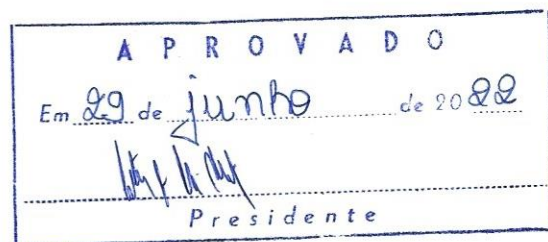 A P R O V A D O
Em 29 de junho de 2022
Presidente